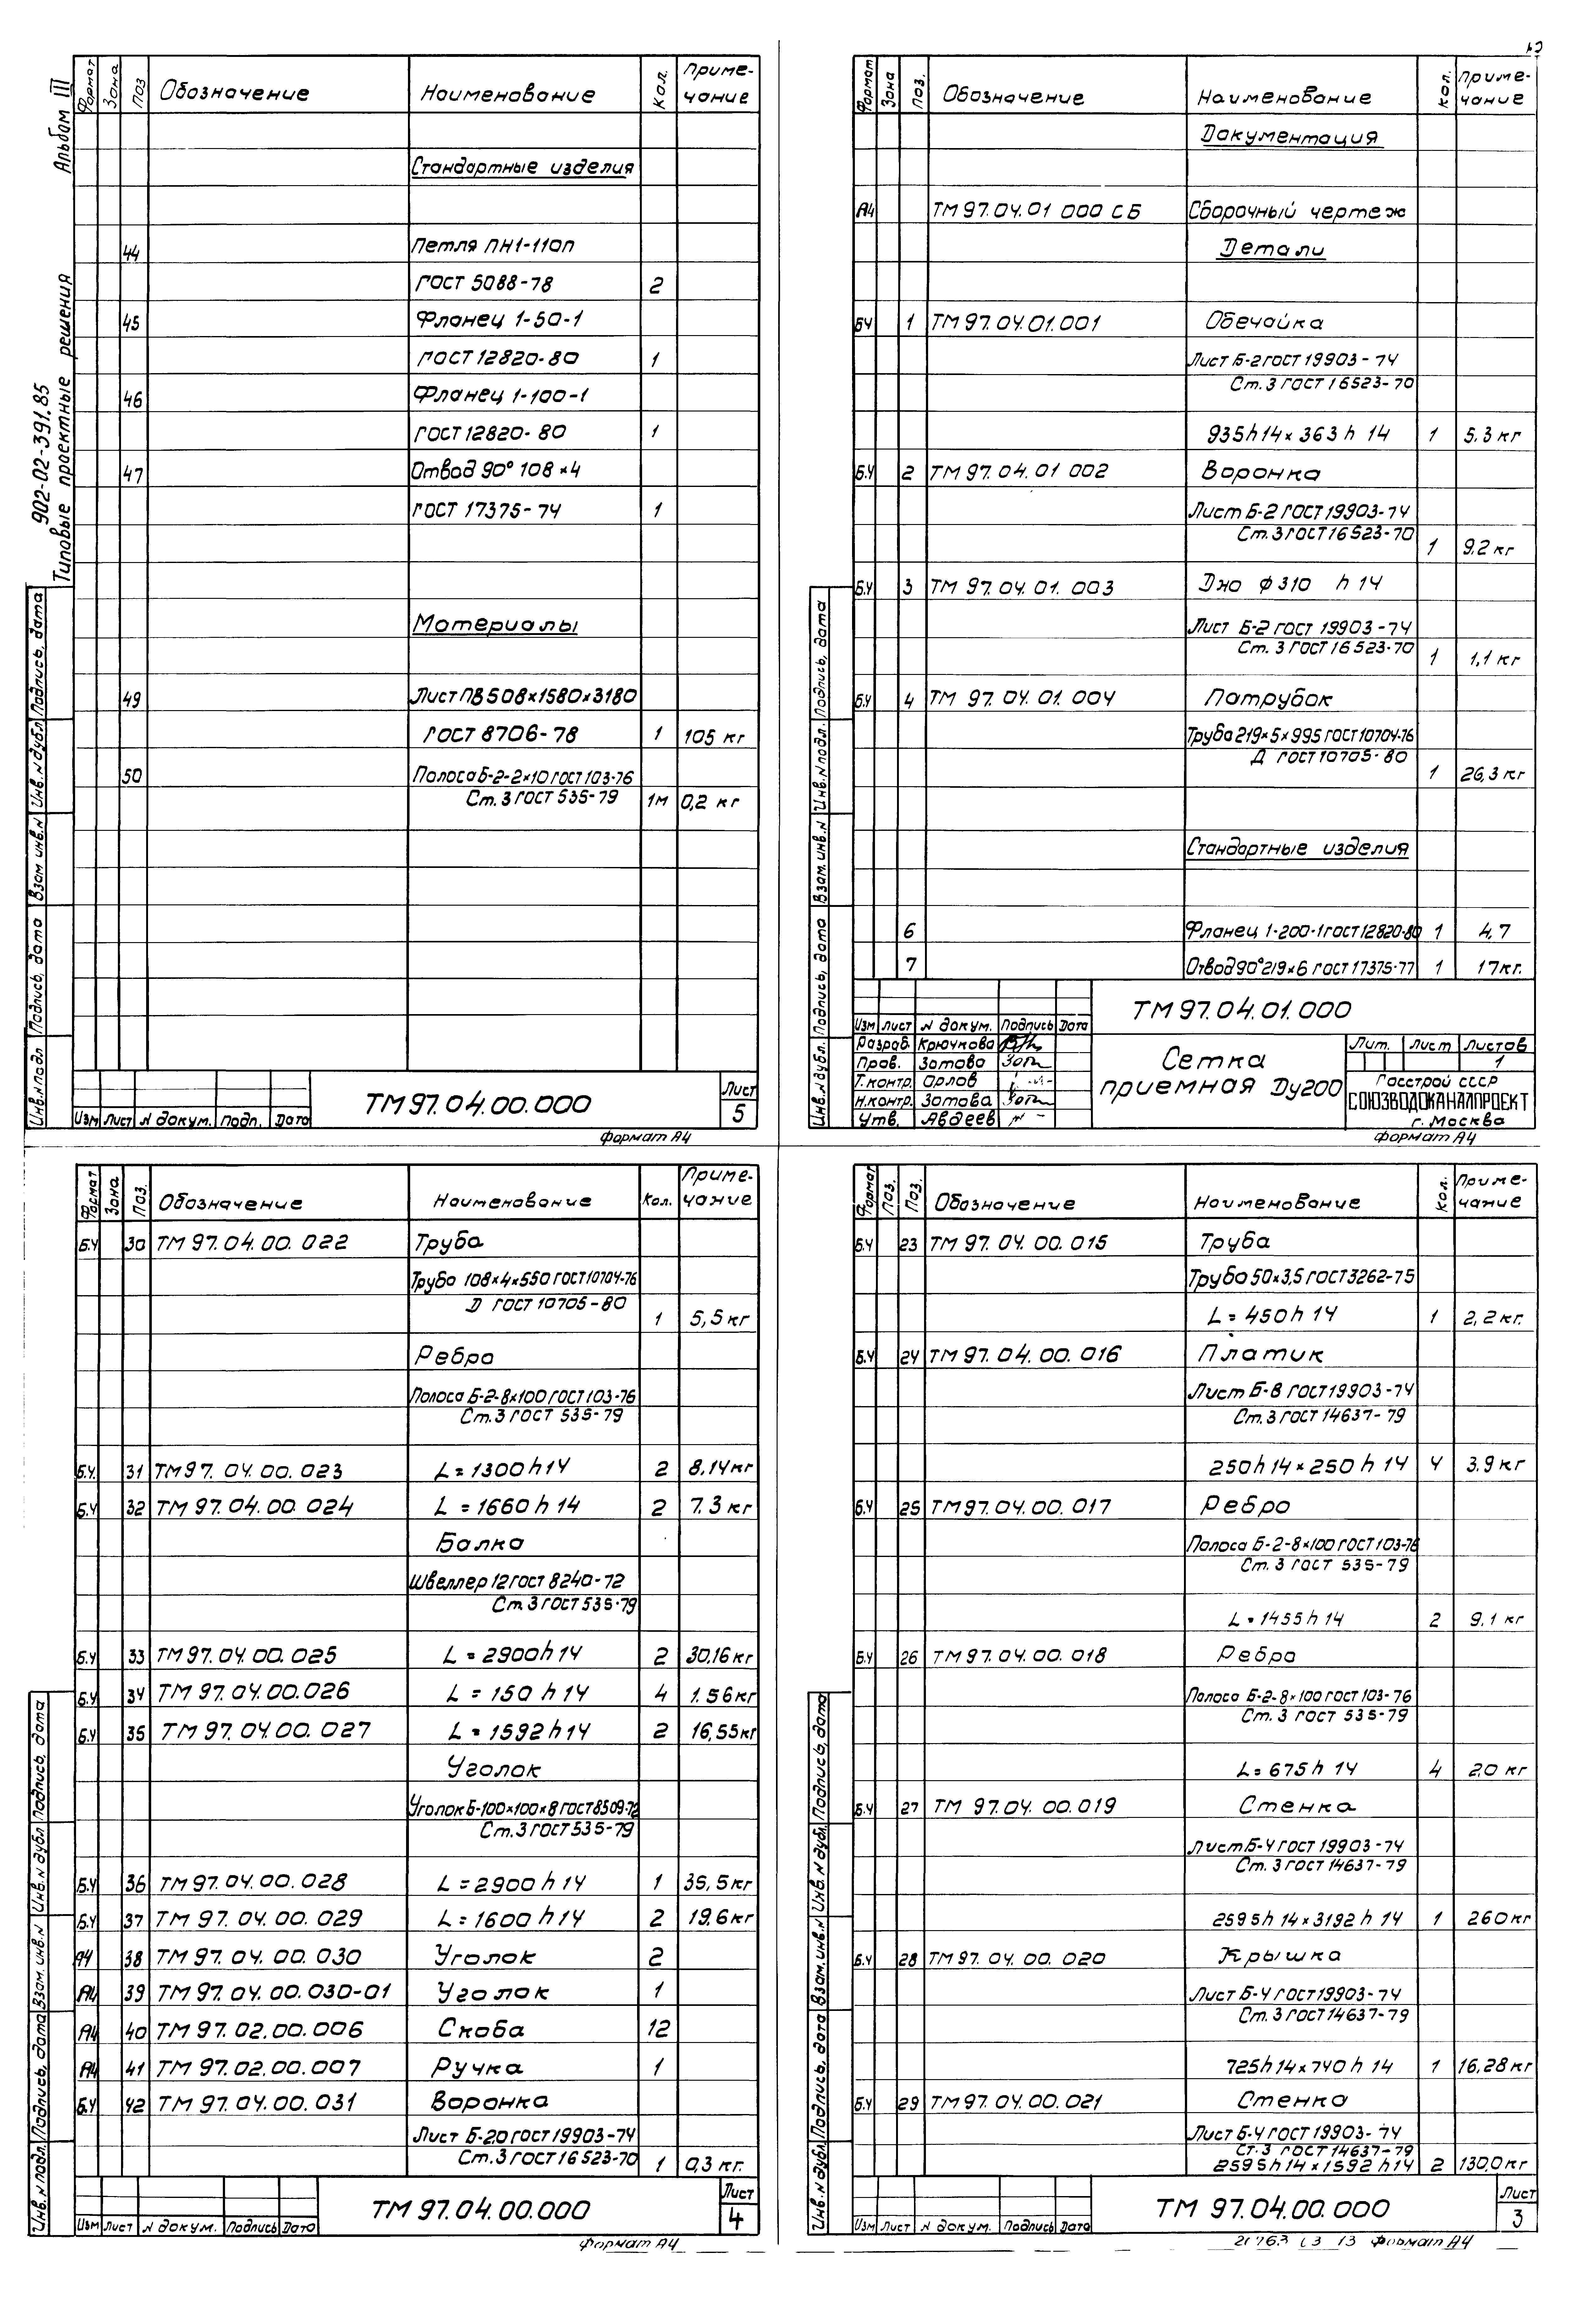 Альбом III
902-02-391.85
Типовые проектные решения
Формат Зона Поз Обозначение Наименование Кол. Приме-чание
Стандартные изделия
44 Петля ПН1-110п
ГОСТ 5088-78 2
45 Фланец 1-50-1
ГОСТ 12820-80 1
46 Фланец 1-100-1
ГОСТ 12820-80 1
47 Отвод 90° 108×4
ГОСТ 17375-74 1
Материалы
49 Лист ПВ508×1580×3180
ГОСТ 8706-78 1 105 кг
50 Полоса Б-2-2×10 ГОСТ 103-76
Ст.3 ГОСТ 535-79 1м 0,2 кг
Инв.№подл Подпись, дата Взам инв.№ Инв.№дубл Подпись, дата
Изм Лист № докум. Подп. Дата
ТМ97.04.00.000
Лист
5
Формат А4
Формат Зона Поз. Обозначение Наименование Кол. Приме-чание
Документация
А4 ТМ97.04.01 000 СБ Сборочный чертеж
Детали
БЧ 1 ТМ97.04.01.001 Обечайка
Лист Б-2 ГОСТ 19903-74
Ст.3 ГОСТ 16523-70
935h14×363 h 14 1 5.3 кг
Б.Ч 2 ТМ97.04.01 002 Воронка
Лист Б-2 ГОСТ 19903-74
Ст.3 ГОСТ 16523-70
1 9.2 кг
Б.Ч 3 ТМ 97.04.01.003 Дно ф310 h 14
Лист Б-2 ГОСТ 19903-74
Ст. 3 ГОСТ 16523-70
1 1,1 кг
Б.Ч 4 ТМ 97.04.01.004 Патрубок
Труба 219×5×995 ГОСТ 10704-76
Д ГОСТ 10705-80
1 26,3 кг
Стандартные изделия
6 Фланец 1-200-1 ГОСТ 12820-80 1 4,7
7 Отвод 90° 219×6 ГОСТ 17375-77 1 17кг.
Инв.№дубл. Подпись, дата Взам.инв.№ Инв.№подл. Подпись, дата
Изм Лист № докум. Подпись Дата
Разраб. Крючкова
Пров. Зотова
Т.контр. Орлов
Н.контр. Зотова
Утв. Авдеев
ТМ97.04.01.000
Сетка
приемная Ду200
Лит. Лист Листов
1
Госстрой СССР
СОЮЗВОДОКАНАЛПРОЕКТ
г. Москва
Формат А4
Формат Зона Поз. Обозначение Наименование Кол. Приме-чание
Б.Ч 30 ТМ97.04.00.022 Труба
Труба 108×4×550 ГОСТ 10704-76
D ГОСТ 10705-80
1 5,5кг
Ребро
Полоса Б-2-8×100 ГОСТ 103-76
Ст.3 ГОСТ 535-79
Б.Ч. 31 ТМ97.04.00.023 L=1300h14 2 8.14кг
Б.Ч 32 ТМ97.04.00.024 L=1660h14 2 7.3 кг
Балка
Швеллер 12 ГОСТ 8240-72
Ст.3 ГОСТ 535-79
Б.Ч 33 ТМ97.04.00.025 L=2900h14 2 30,16кг
Б.Ч 34 ТМ97.04.00.026 L=150h14 4 1.56кг
Б.Ч 35 ТМ97.04.00.027 L=1592h14 2 16,55кг
Уголок
Уголок Б-100×100×8 ГОСТ 8509-72
Ст.3 ГОСТ 535-79
Б.Ч 36 ТМ97.04.00.028 L=2900h14 1 35,5кг
Б.Ч 37 ТМ97.04.00.029 L=1600h14 2 19.6кг
А4 38 ТМ97.04.00.030 Уголок 2
А4 39 ТМ97.04.00.030-01 Уголок 1
А4 40 ТМ97.02.00.006 Скоба 12
А4 41 ТМ97.02.00.007 Ручка 1
Б.Ч 42 ТМ97.04.00.031 Воронка
Лист Б-2.0 ГОСТ 19903-74
Ст.3 ГОСТ 16523-70 1 0,3 кг.
Инв.№подл. Подпись, дата Взам.инв.№ Инв.№дубл Подпись, дата
Изм Лист № докум. Подпись Дата
ТМ97.04.00.000
Лист
4
Формат А4
Формат Поз. Поз. Обозначение Наименование Кол. Приме-чание
Б.Ч 23 ТМ97.04.00.015 Труба
Труба 50×3,5 ГОСТ 3262-75
L=450h14 1 2,2кг.
Б.Ч 24 ТМ97.04.00.016 Платик
Лист Б-8 ГОСТ 19903-74
Ст.3 ГОСТ 14637-79
250h14×250h14 4 3.9кг
Б.Ч 25 ТМ97.04.00.017 Ребро
Полоса Б-2-8×100 ГОСТ 103-76
Ст.3 ГОСТ 535-79
L=1455h14 2 9.1 кг
Б.Ч 26 ТМ97.04.00.018 Ребро
Полоса Б-2-8×100 ГОСТ 103-76
Ст.3 ГОСТ 535-79
L=675h14 4 2,0 кг
Б.Ч 27 ТМ97.04.00.019 Стенка
Лист Б-4 ГОСТ 19903-74
Ст.3 ГОСТ 14637-79
2595h14×3192h14 1 260кг
Б.Ч 28 ТМ97.04.00.020 Крышка
Лист Б-4 ГОСТ 19903-74
Ст.3 ГОСТ 14637-79
725h14×740h14 1 16,28кг
Б.Ч 29 ТМ97.04.00.021 Стенка
Лист Б-4 ГОСТ 19903-74
Ст.3 ГОСТ 14637-79
2595h14×1592h14 2 130,0кг
Инв.№дубл. Подпись, дата Взам.инв.№ Инв.№дубл. Подпись, дата
Изм Лист № докум. Подпись Дата
ТМ97.04.00.000
Лист
3
13 Формат А4